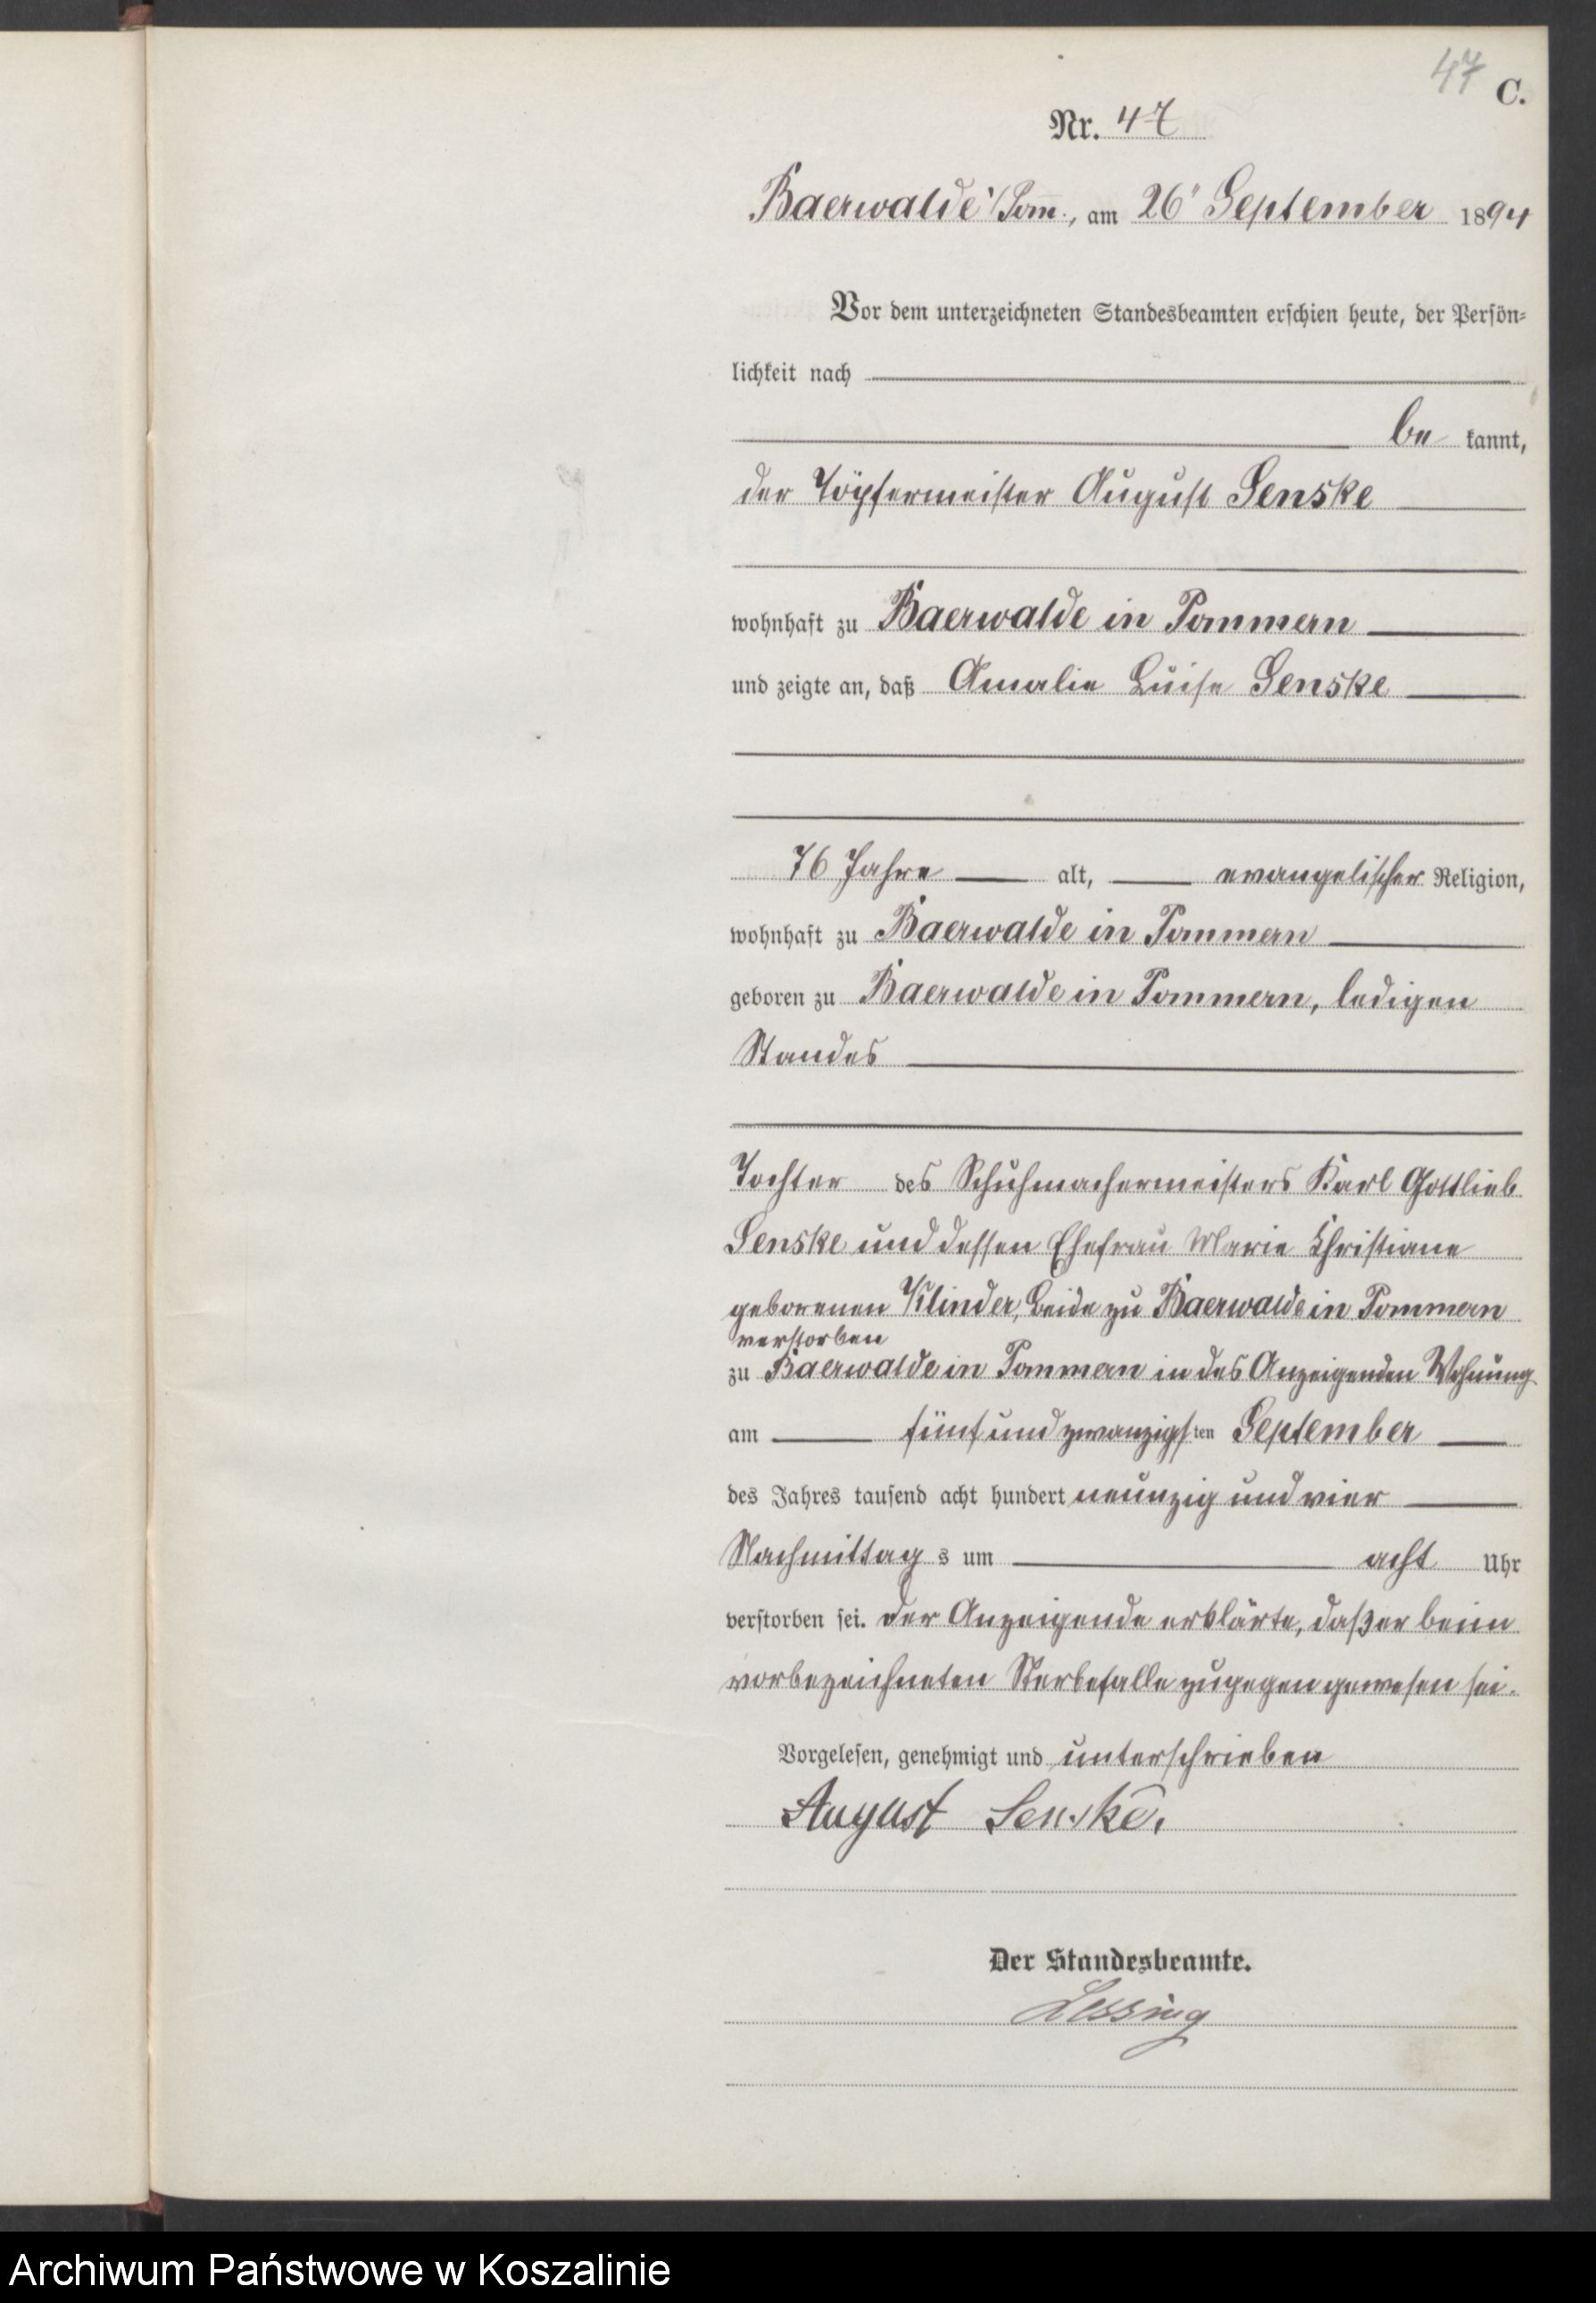 47
C.
Nr. 47
Baerwalde i/Pom., am 26 September 1894
Vor dem unterzeichneten Standesbeamten erschien heute, der Persön-
lichkeit nach
be kannt,
der Töpfermeister August Senske
wohnhaft zu Baerwalde in Pommern
und zeigte an, daß Amalie Luise Senske
76 Jahre alt, evangelischer Religion,
wohnhaft zu Baerwalde in Pommern
geboren zu Baerwalde in Pommern, ledigen
Standes
Tochter des Schuhmachermeisters Karl Gottlieb
Senske und dessen Ehefrau Marie Christiane
geborenen Klinder, beide zu Baerwalde in Pommern
verstorben
zu Baerwalde in Pommern in des Anzeigenden Wohnung
am fünf und zwanzigsten September
des Jahres tausend acht hundert neunzig und vier
Nachmittag s um acht Uhr
verstorben sei. Der Anzeigende erklärte, daß er beim
vorbezeichneten Sterbefalle zugegen gewesen sei.
Vorgelesen, genehmigt und unterschrieben
August Senske.
Der Standesbeamte.
Lessing
Archiwum Państwowe w Koszalinie